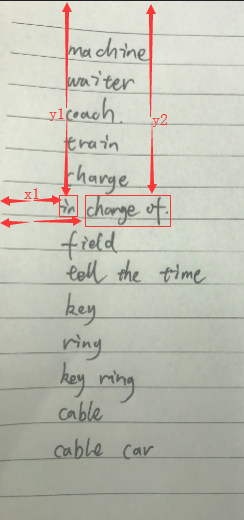 machine
waiter
y1 coach. y2
train
charge
x1
in change of.
field
tell the time
key
ring
key ring
cable
cable car